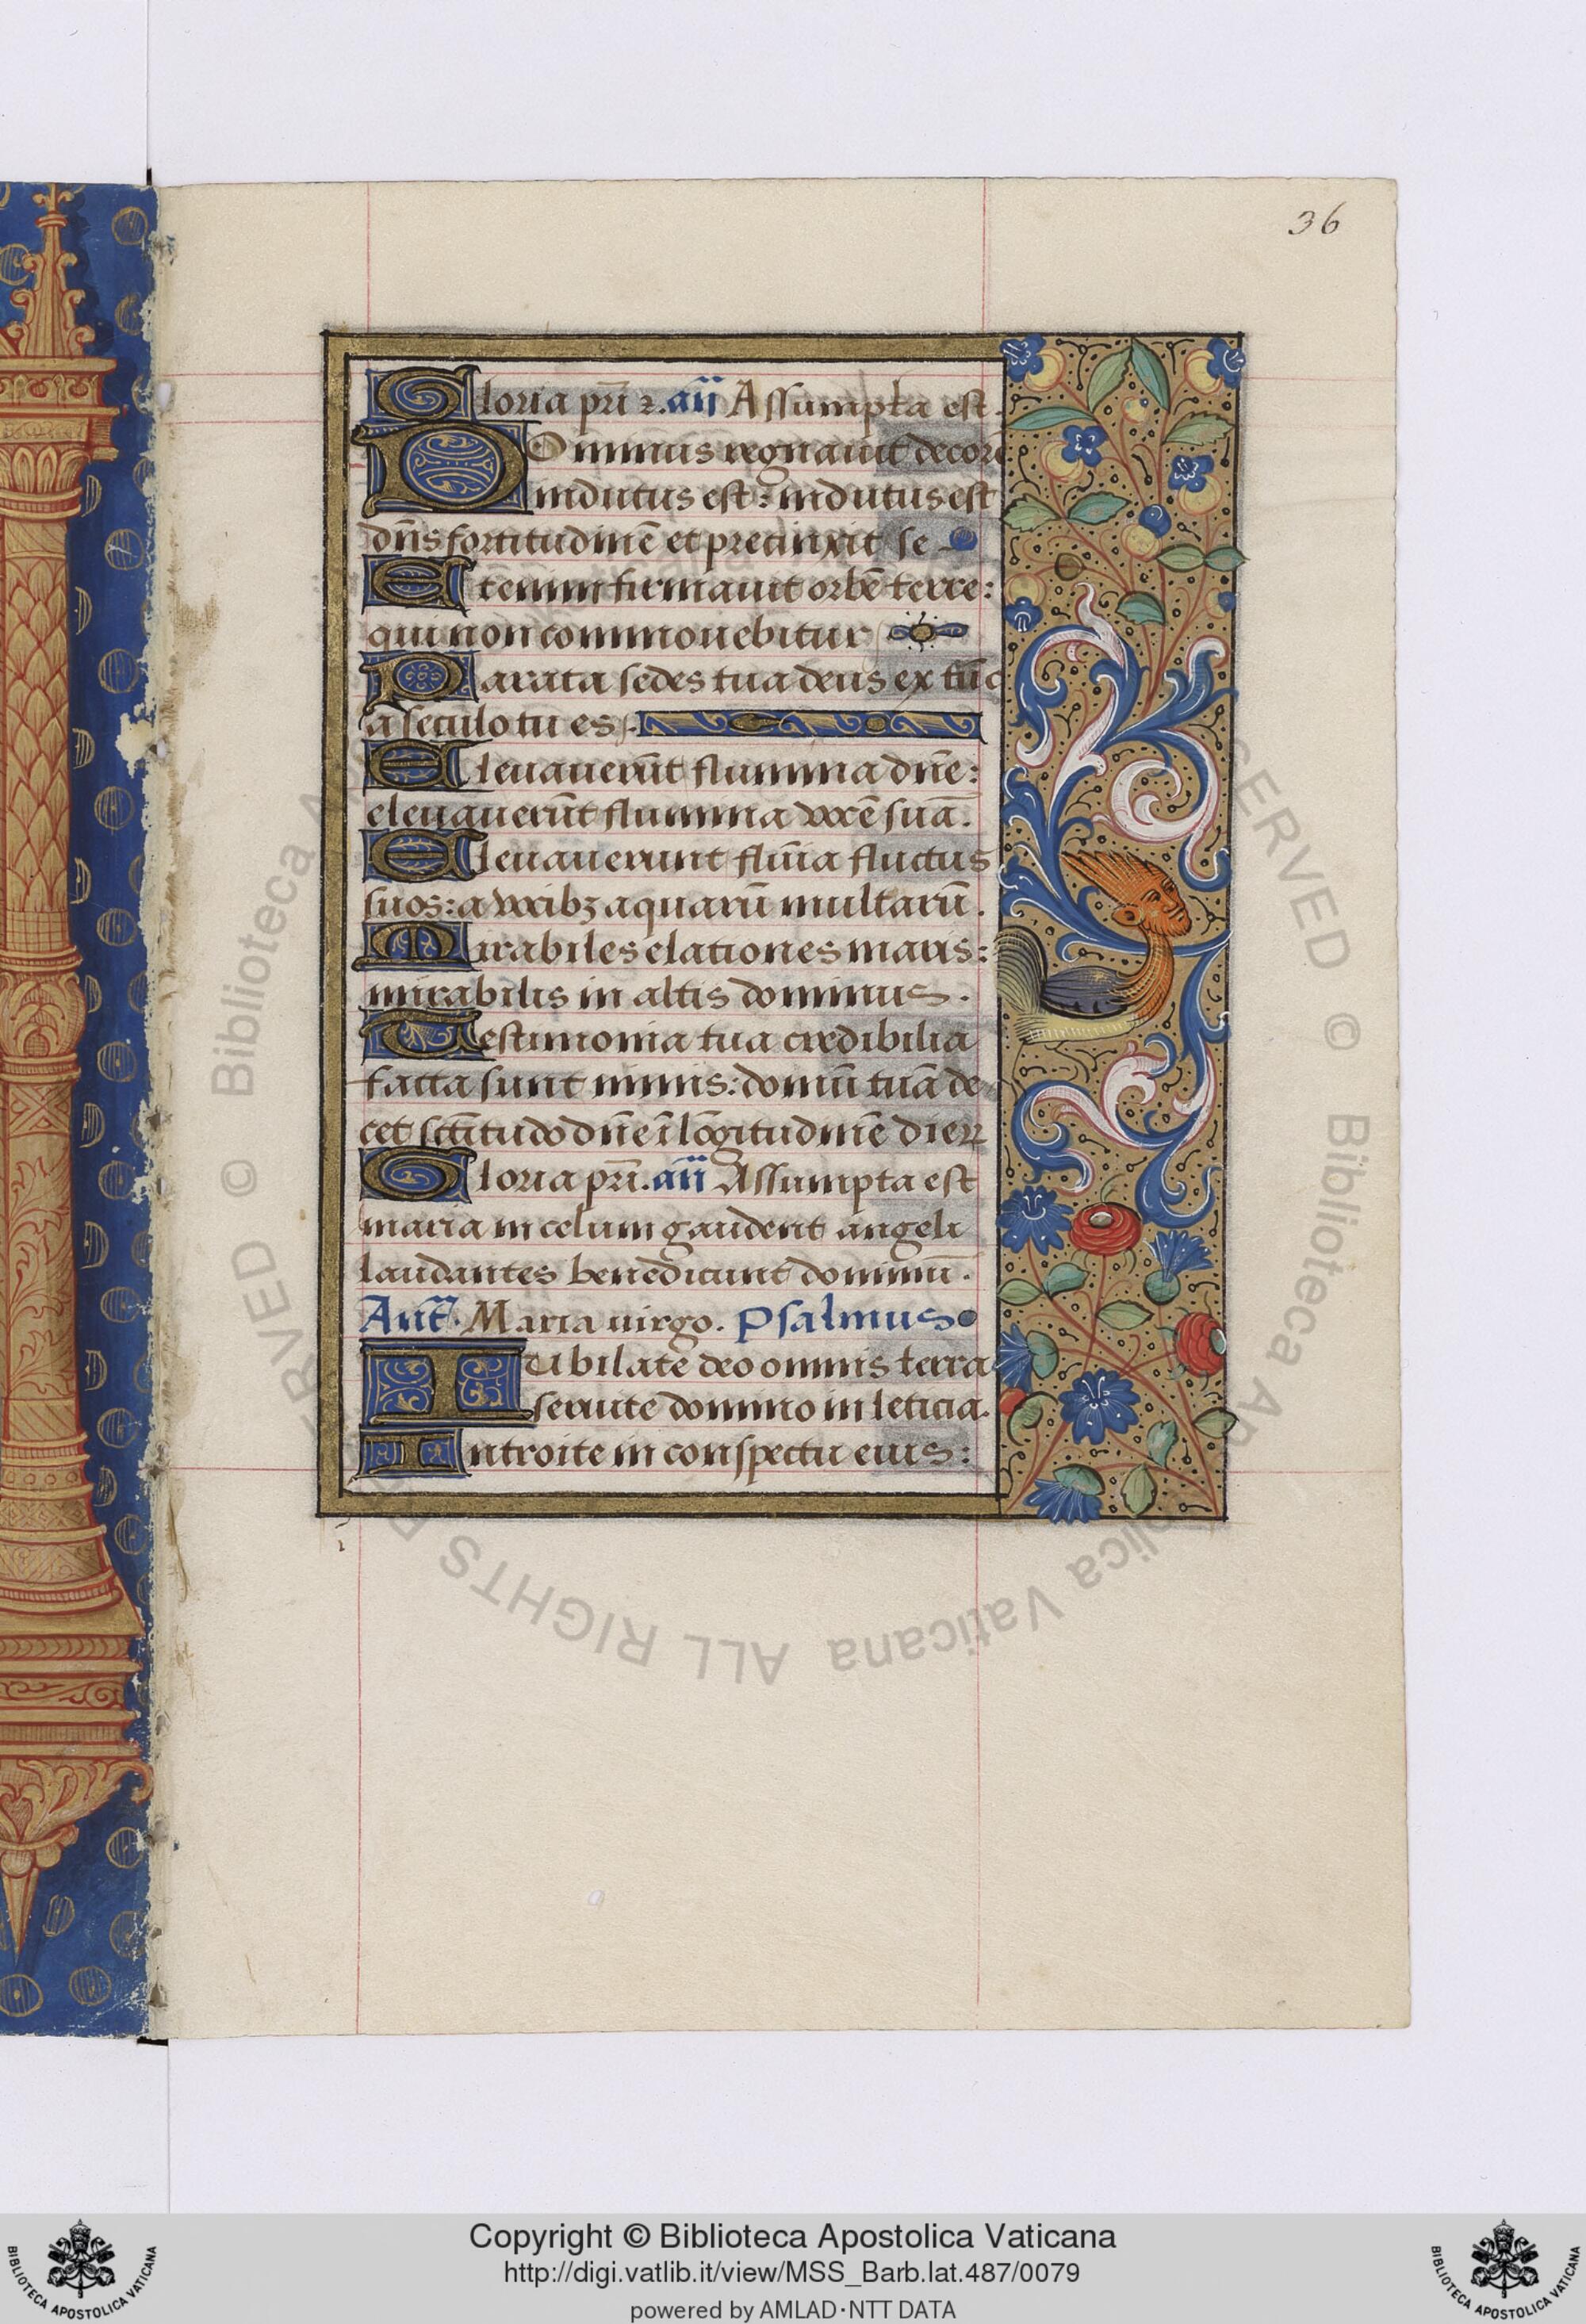 36
Gloria pr̄i ⁊. añ Assumpta est.
DOminus regnauit decorē
indutus est: indutus est
dñs fortitudinē et precinxit se
Etenim firmauit orbē terre:
qui non commouebitur
Parata sedes tua deus ex tūc
a seculo tu es.
Eleuauerūt flumina dñe:
eleuauerūt flumina vocē suā.
Eleuauerunt flūia fluctus
suos: a vocibꝫ aquarū multarū.
Mirabiles elationes maris:
mirabilis in altis dominus.
Testimonia tua credibilia
facta sunt nimis: domū tuā de
cet sc̄titudo dñe ī lōgitudinē dieꝝ
Gloria pr̄i. añ Assumpta est
maria in celum gaudent angeli
laudantes benedicunt dominū.
Antᵃ. Maria uirgo. Psalmus
IUbilate deo omnis terra
seruite domino in leticia.
Introite in conspectu eius:
© Biblioteca Apostolica Vaticana ALL RIGHTS RESERVED
Copyright © Biblioteca Apostolica Vaticana
http://digi.vatlib.it/view/MSS_Barb.lat.487/0079
powered by AMLAD·NTT DATA
BIBLIOTECA APOSTOLICA VATICANA
BIBLIOTECA APOSTOLICA VATICANA